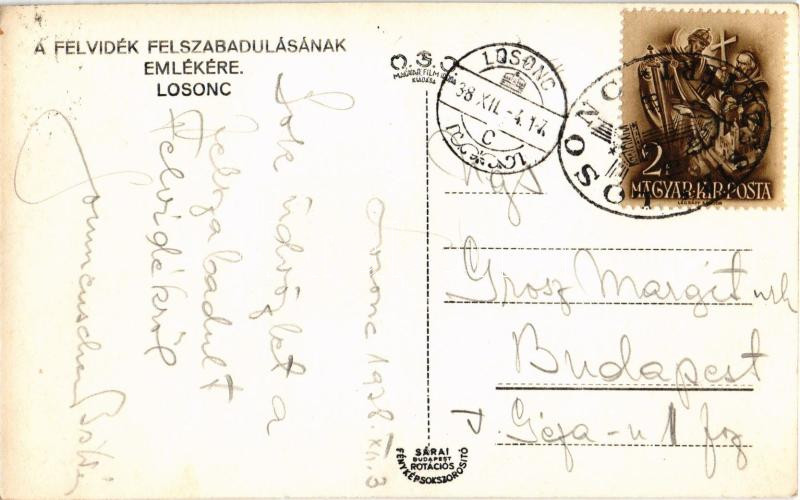 A FELVIDÉK FELSZABADULÁSÁNAK
EMLÉKÉRE.
LOSONC
Sok üdvözlet a
felszabadult
Felvidékről
Losonc 1938. XII. 3
O.S.O
MAGYAR FILM IRODA
KIADÁSA
LOSONC
38 XII. -4. 17
C
LOSONC
2
MAGYAR·KIR·POSTA
LÉGRÁDY SÁNDOR
Ngs
Grosz Margit urh
Budapest
Géja-u 1 fsz
SÁRAI
BUDAPEST
ROTÁCIÓS
FÉNYKÉPSOKSZOROSITÓ